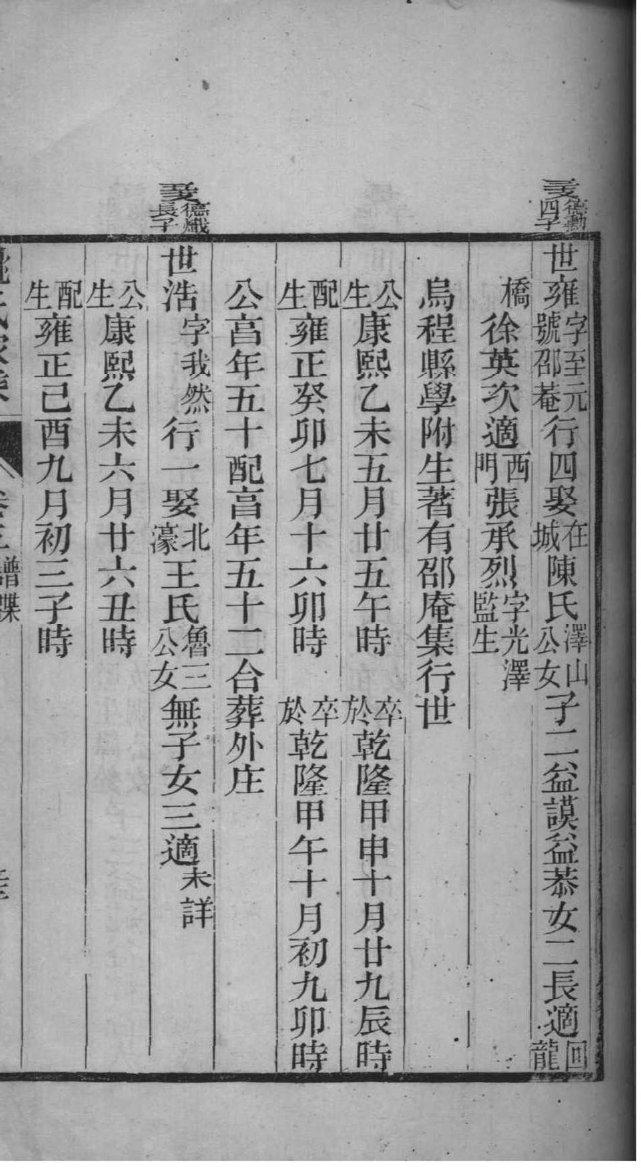 德勳四子
世雍字至元號邵菴行四娶在城陳氏澤山公女子二益謨益恭女二長適回龍
橋徐英次適西門張承烈字光澤監生
烏程縣學附生著有邵庵集行世
公生康熙乙未五月廿五午時 卒於乾隆甲申十月廿九辰時
配生雍正癸卯七月十六卯時 卒於乾隆甲午十月初九卯時
公享年五十配享年五十二合葬外庄
德熾長子
世浩字我然行一娶北濠王氏魯三公女無子女三適未詳
公生康熙乙未六月廿六丑時
配生雍正己酉九月初三子時
氏家乘
譜牒